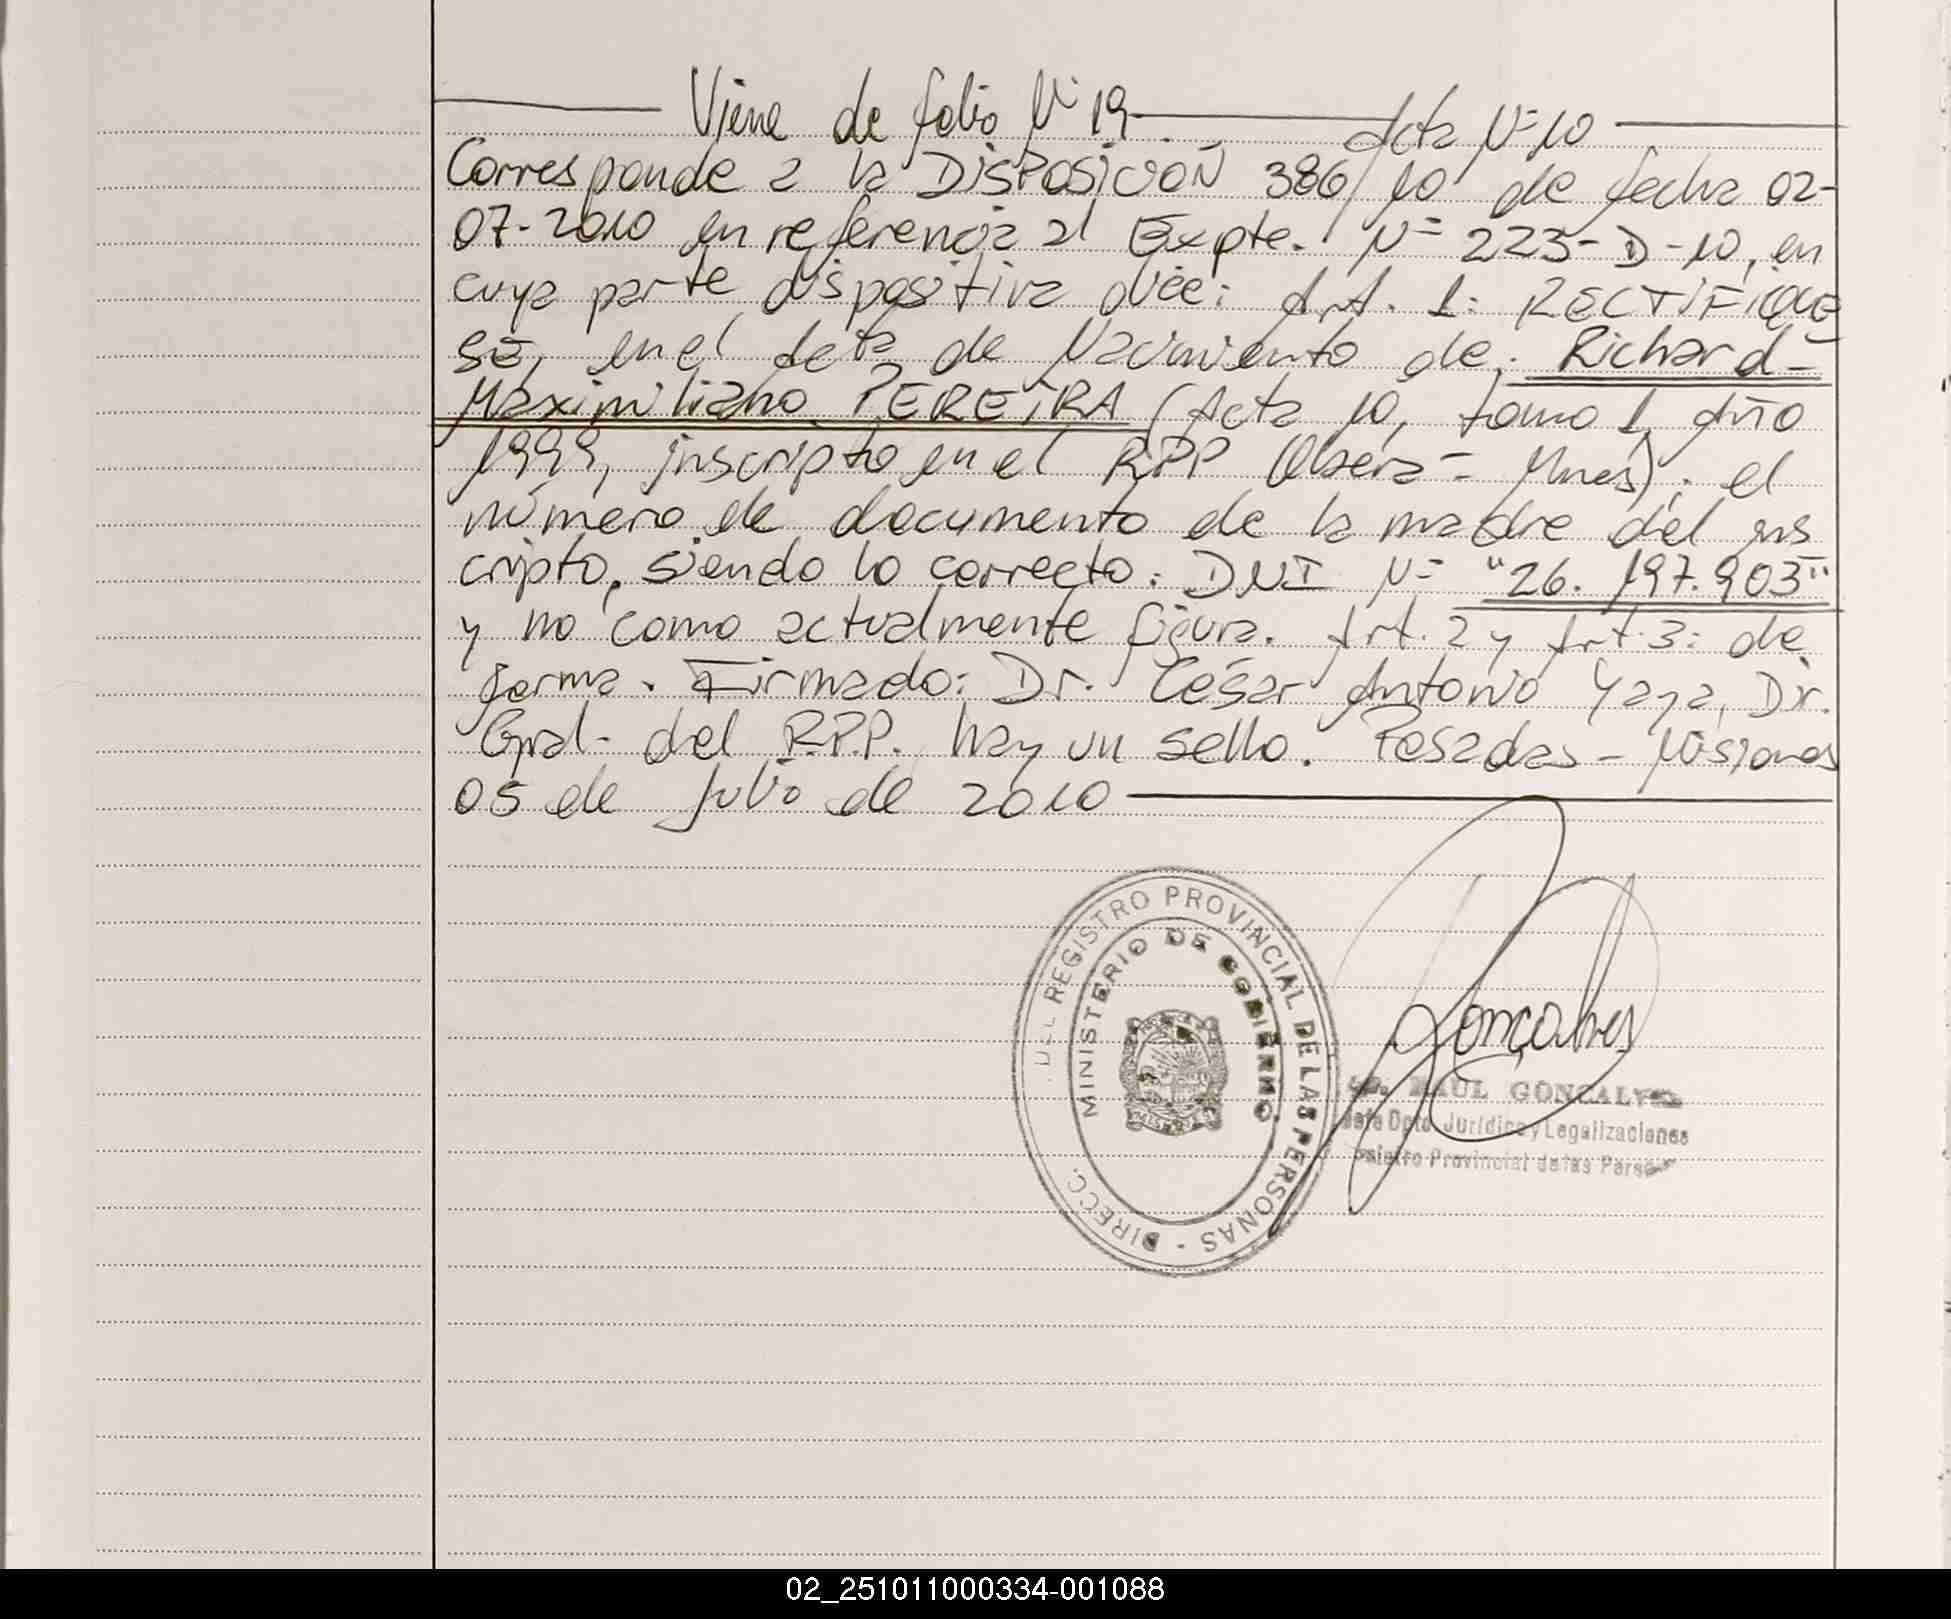 Viene de folio Nº 19 Acta Nº 10
Corresponde a la DISPOSICIÓN 386/10 de fecha 02-
07-2010 en referencia al Expte. Nº 223-D-10, en
cuya parte dispositiva dice: Art. 1: RECTIFIQUE
SE, en el Acta de Nacimiento de: Richard-
Maximiliano PEREIRA (Acta 10, tomo 1, año
1999, inscripto en el RPP Oberá - Mnes); el
número de documento de la madre del ins
cripto, siendo lo correcto: DNI Nº "26.197.903"
y no como actualmente figura. Art. 2 y Art. 3: de
forma. Firmado: Dr. César Antonio Yaya, Dir.
Gral. del R.P.P. hay un sello. Posadas - Misiones
05 de Julio de 2010
DIRECC. DEL REGISTRO PROVINCIAL DE LAS PERSONAS -
MINISTERIO DE GOBIERNO
Goncalves
RAUL GONCALVES
Jefe Dpto. Jurídico y Legalizaciones
Registro Provincial de las Personas
02_251011000334-001088